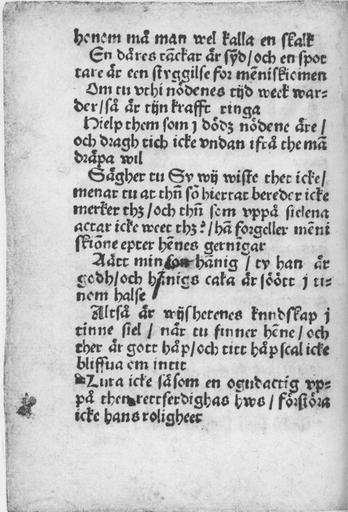 henom må man wel kalla en skalk
En dåres tāckar är sÿd/och en spot
tare är een styggilse for mēniskiomen
Om tu vthi nödenes tijd weck war-
der/så är tijn krafft ringa
Hielp them som j dödz nödene äre/
och dragh tich icke vndan ifrå the mā
dräpa wil
Sägher tu Sy wij wiste thet icke/
menar tu at thñ sō hiertat bereder icke
merker thz/och thñ som vppå sielena
actar icke weet thz? / hā forgeller mēni
skiōne epter hēnes gernigar
Aätt min son hānig / ty han är
godh/och hānigs caka är söött j ti-
nom halse
Altså är wijshetenes kundskap j
tinne siel / när tu finner hēne/och
ther är gott håp/och titt håp scal icke
bliffua om intit
Lura icke såsom en ogudactig vp-
på then rettferdighas hws / förstöra
icke hans roligheet